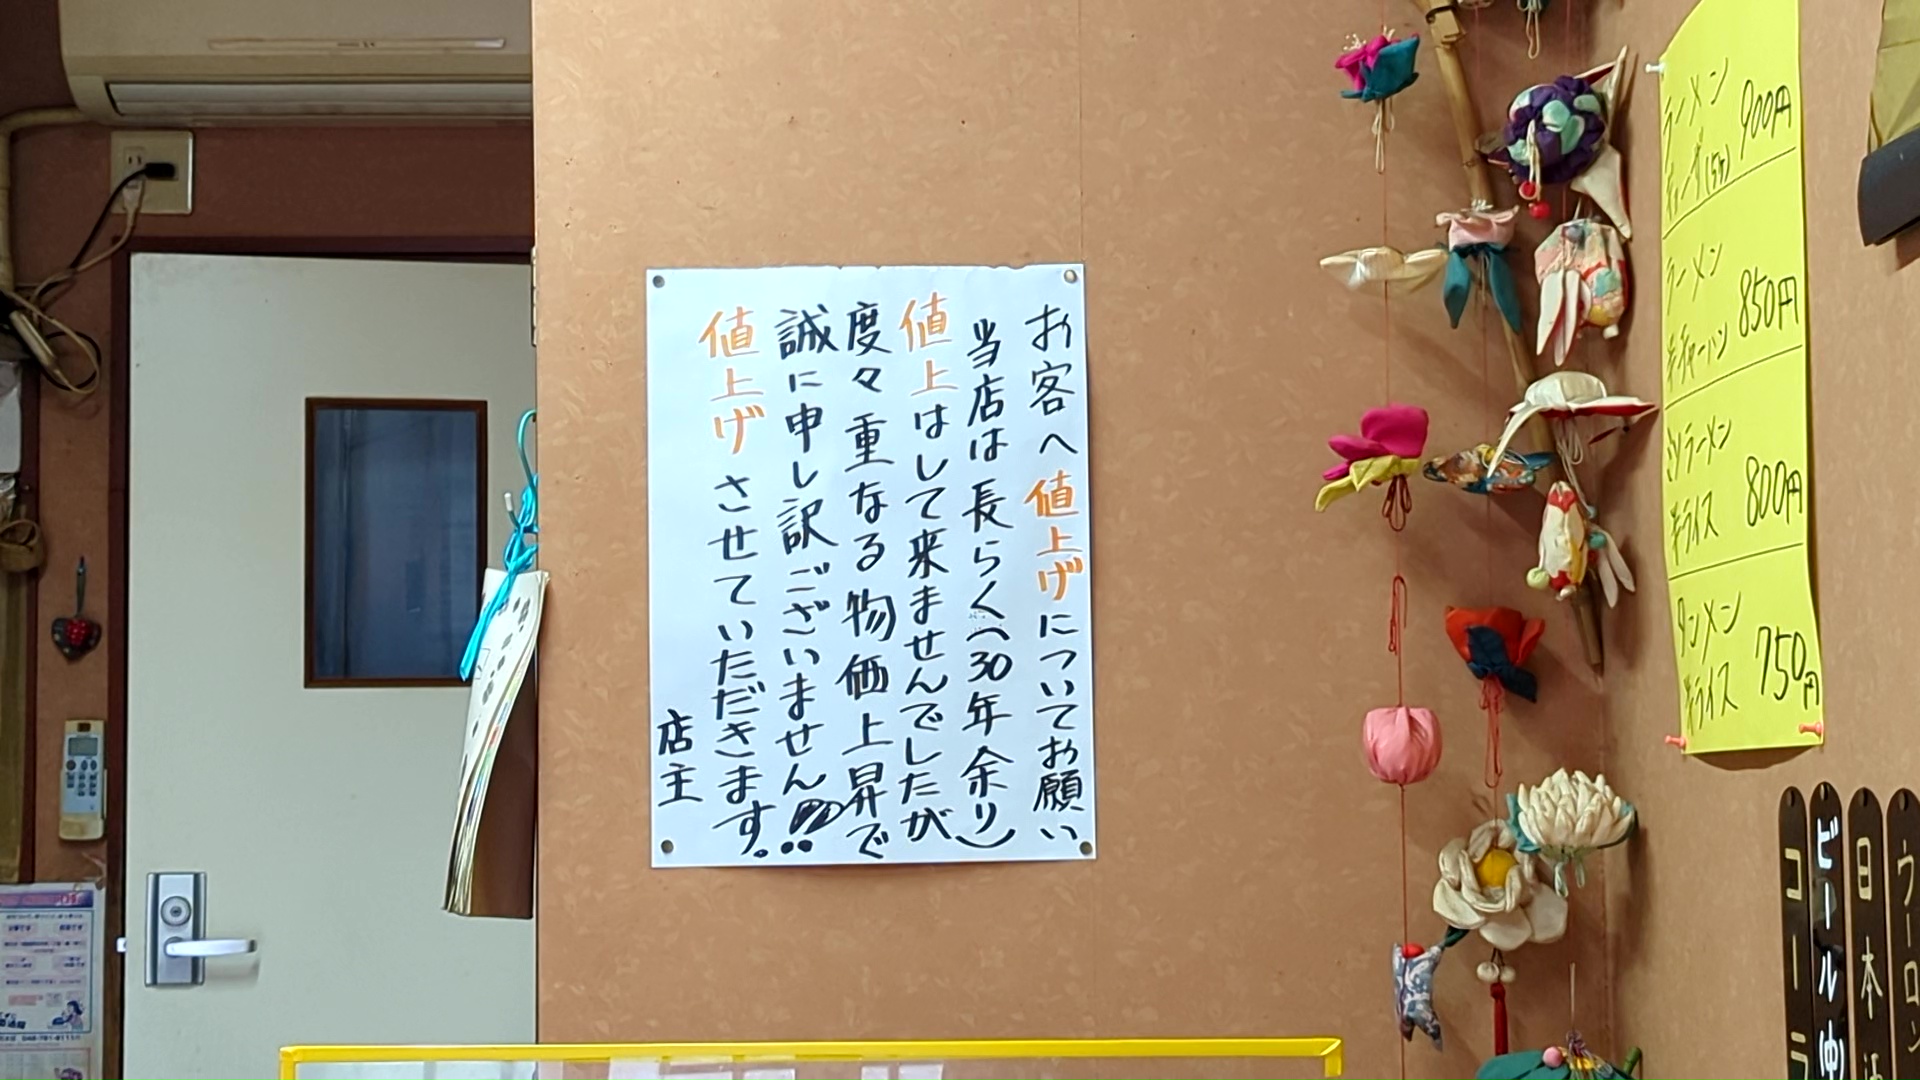 お客へ値上げについてお願い
当店は長らく(30年余り)
値上はして来ませんでしたが
度々重なる物価上昇で
誠に申し訳ございません!!
値上げさせていただきます。
店主
ラーメン
900円
ラーメン
半チャーハン
850円
ミソラーメン
半ライス
800円
タンメン
半ライス
750円
ウーロン
日本
ビール(中)
コーラ